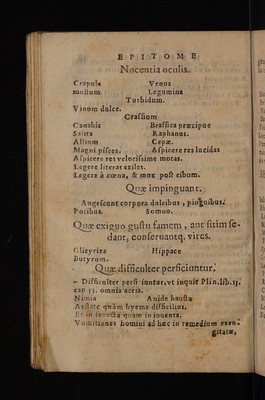 EPITOME
Nocentia oculis.
Crapula Venus
multum Legumina
Turbidum.
Vinum dulce.
Crassum
Canabis Brassica præcipue
Salita Raphanus.
Allium Cepæ.
Magni pisces. Aspicere res lucidas
Aspicere res velocissime motas.
Legere literas exiles.
Legere à cœna, & mox post cibum.
Quæ impinguant.
Augescunt corpora dulcibus, pinguibus.
Potibus. Somno.
Quæ exiguo gustu famem, aut sitim se-
dant, conseruantq; vires.
Glicyriza Hippace
Butyrum.
Quæ difficulter perficiuntur.
Difficulter perficiuntur, vt inquit Plin. lib.
cap omnia acria.
Nimia Auide hausta
Aestate quàm hyeme difficilius,
Et in senecta quam in iuuenta.
Vomitiones homini ad hæc in remedium exco-
gitatæ,